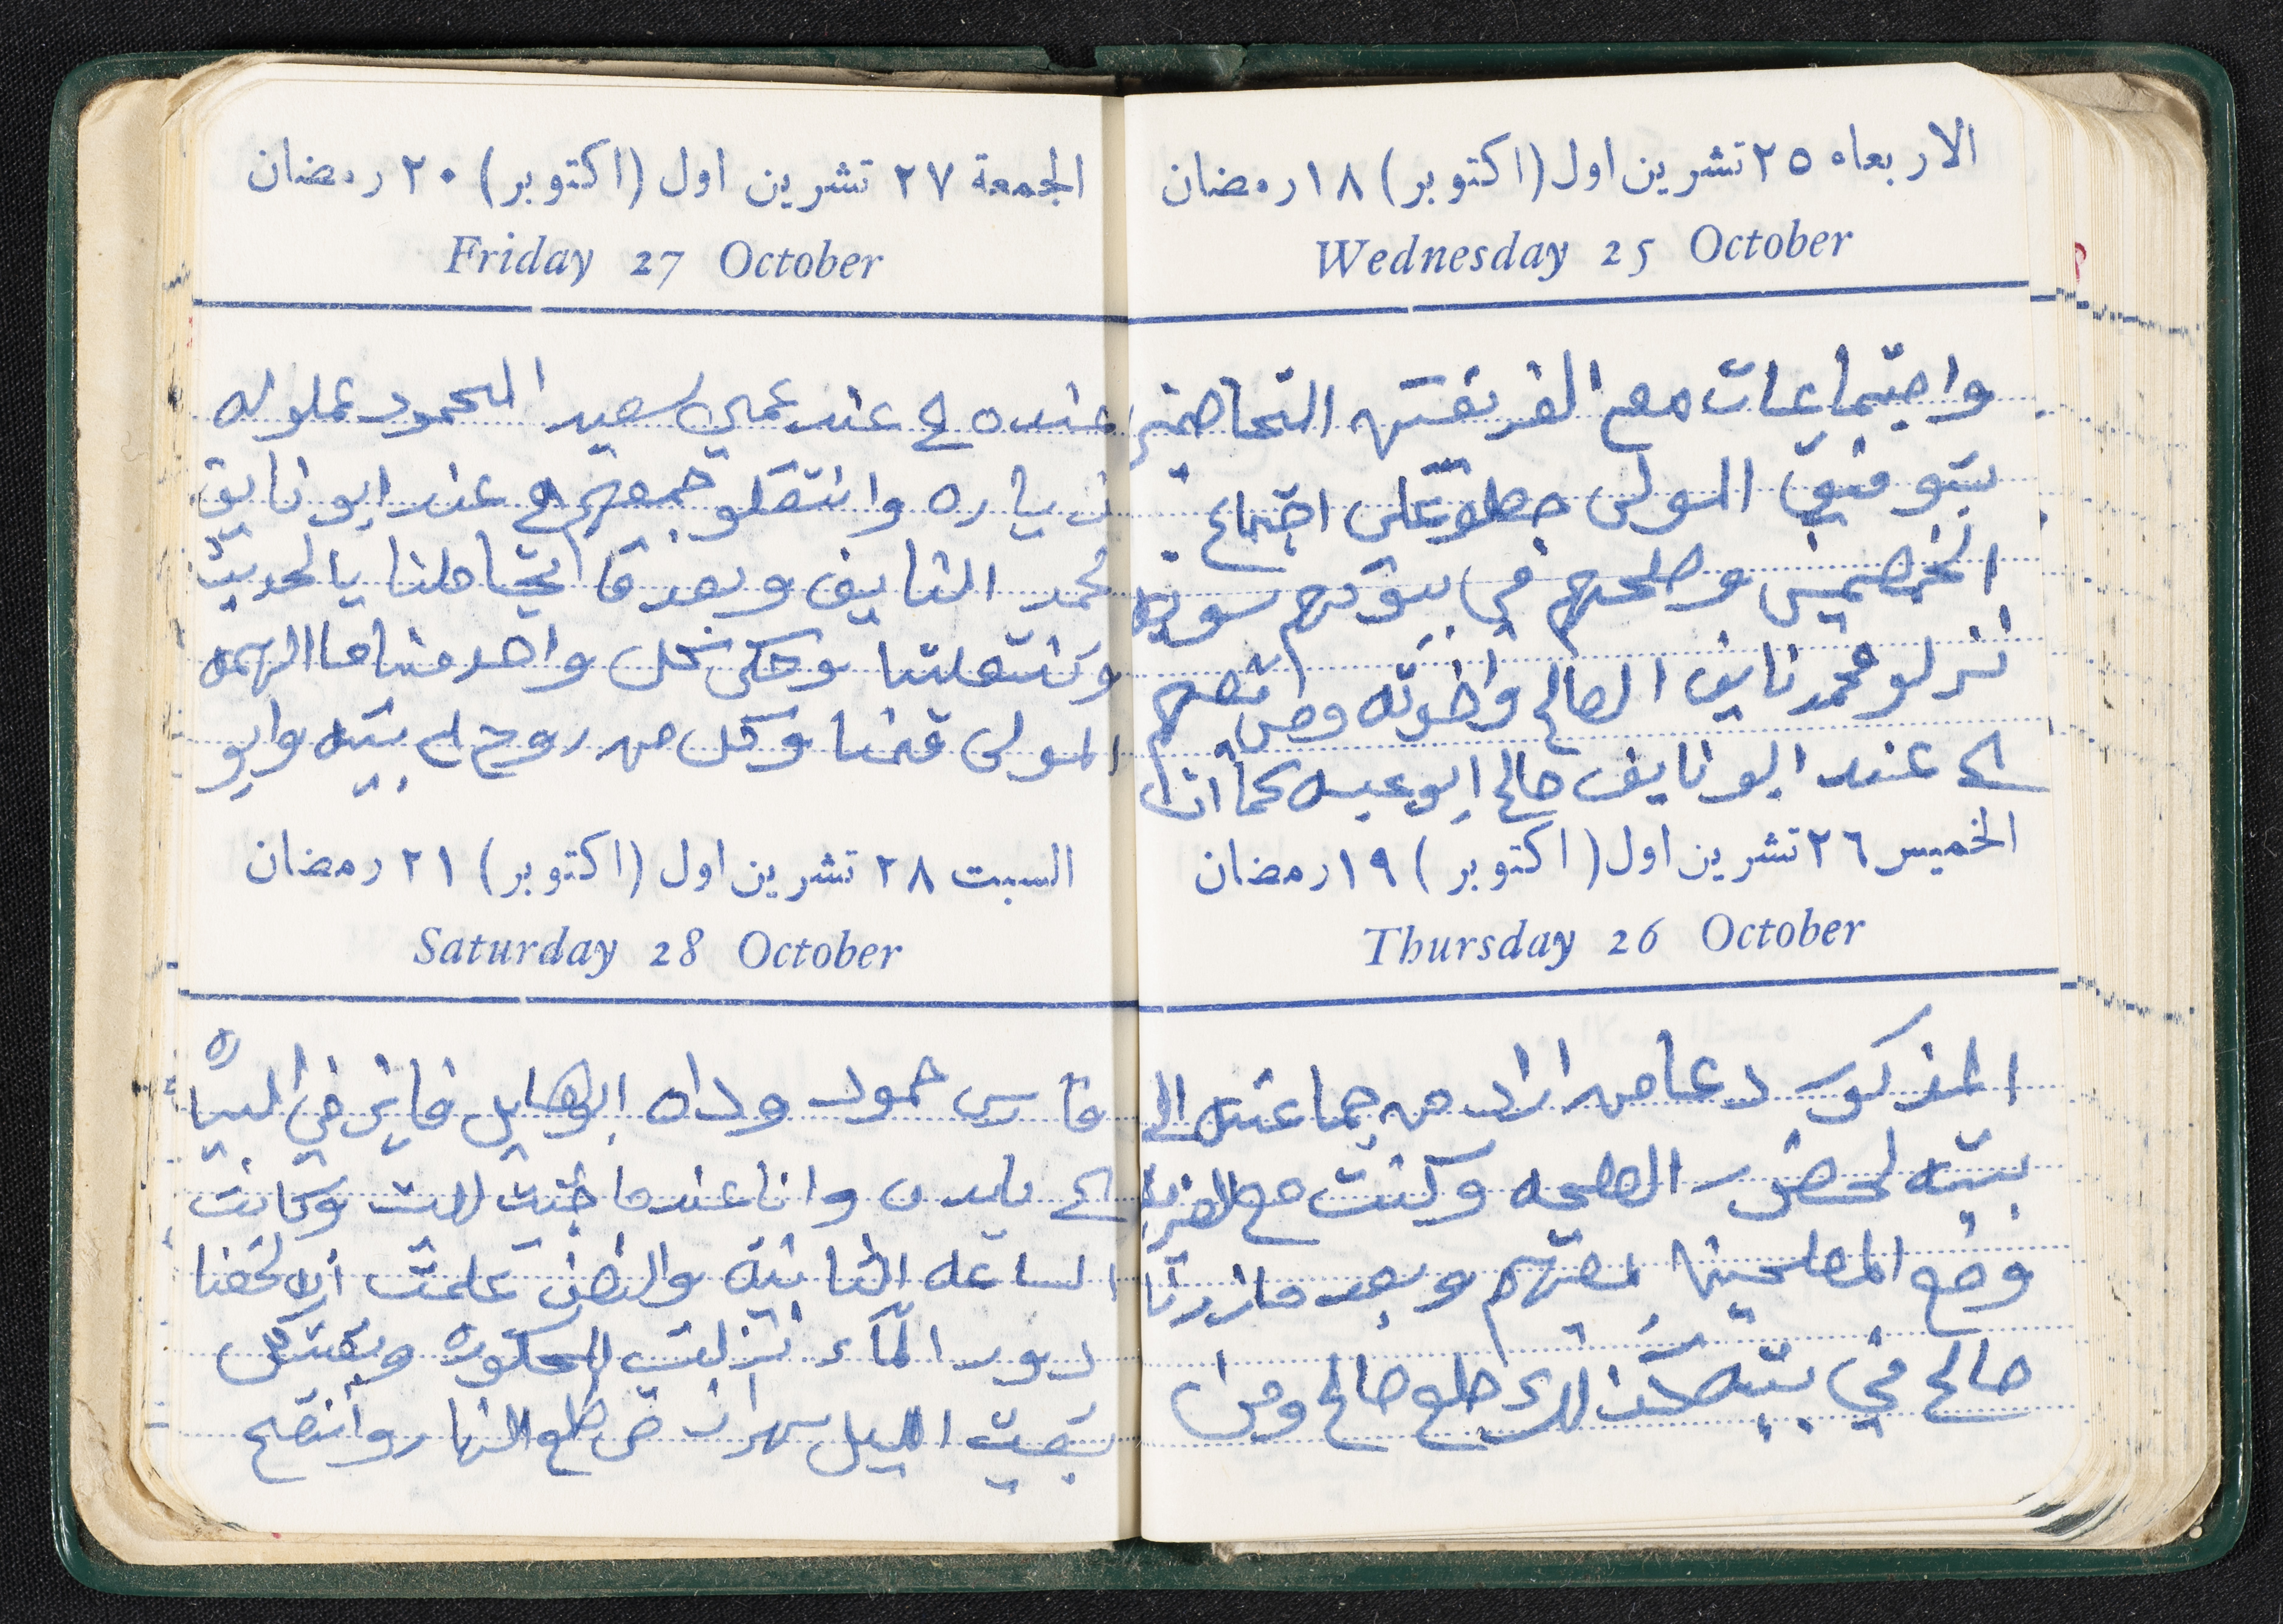 الاربعاء ٢٥ تشرين اول (اكتوبر) ١٨ رمضان
Wednesday 25 October
واجتماعات مع الفريقين المتخاصمين
بتوفيق المولى على اجتماع
الخصمين وصلحهم في بيوتهم سويه
نزلو محمد نايف الصالح واخوته ومن
الى عند ابو نايف صالح ابو عبيه كما ان
الخميس ٢٦ تشرين اول (اكتوبر) ١٩ رمضان
Thursday 26 October
المذكور دعا من اراد من جماعته الى
بيته لحضر الصلحه وكنت مع
ومع المصلحين معهم وبعد مازرنا
صالح في بيته كذلك طلع صالح ومن
الجمعة ٢٧ تشرين اول (اكتوبر) ٢٠ رمضان
Friday 27 October
عنده الى عند عمي سعيد المحمود عملوله
زياره وانتقلو جمعهم الى عند ابو نايف
محمد النايف وبعد ما بالحديث
وحكى كل واحد منا ما الهمه
المولى قمنا وكل من روح الى بيته وابو
السبت ٢٨ تشرين اول (اكتوبر) ٢١ رمضان
Saturday 28 October
فارس حمود وداه ابو هايل فايز في السياره
الى بلده وانا عندما جئت للبيت وكانت
الساعه الثانيه والنصف علمت ان لحقنا
دور الماء نزلت للحكوره
بقيت الليل سهران طلع النهار